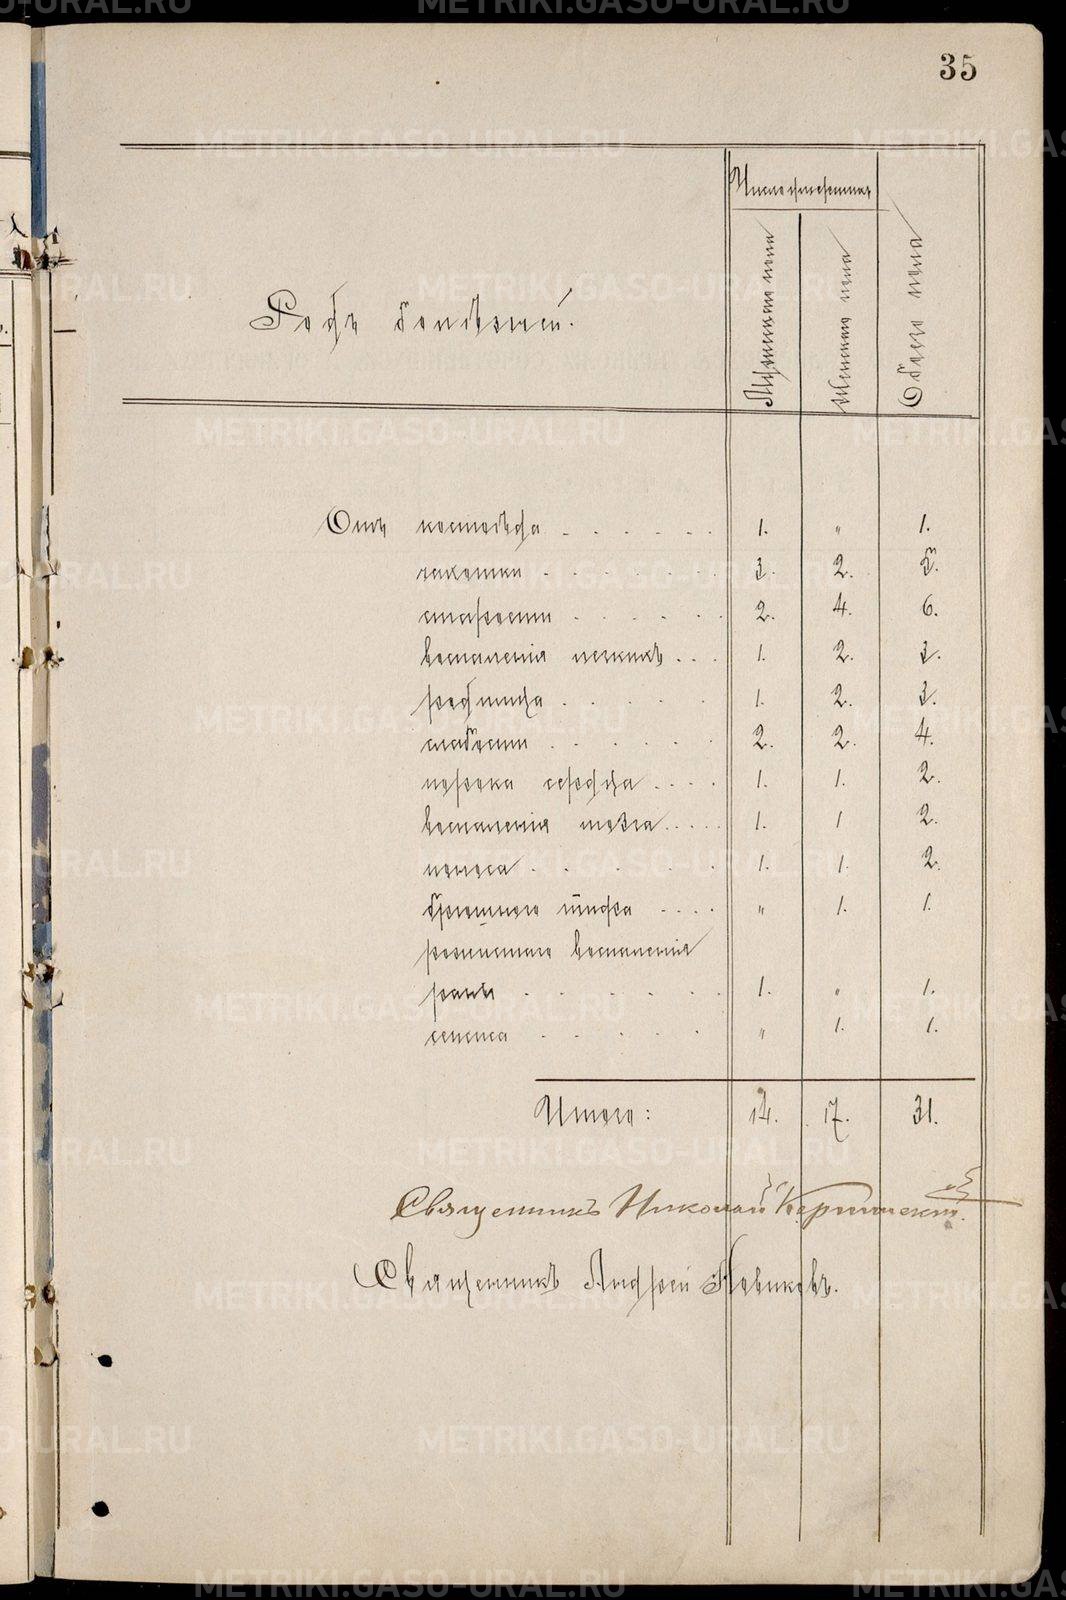 35
Родъ болѣзней.
Число умершихъ
Мужескаго пола
Женскаго пола
Обоего пола
Отъ костоѣда . . . . . . 1. " 1.
чахотки . . . . . . 3. 2. 5.
старости . . . . . . 2. 4. 6.
воспаленія легкихъ . . . 1. 2. 3.
родимца . . . . . 1. 2. 3.
слабости . . . . . . 2. 2. 4.
порока сердца . . . . 1. 1. 2.
воспаленія мозга . . . . . 1. 1 2.
поноса . . . . . . 1. 1. 2.
брюшного тифа . . . . " 1. 1.
рожистаго воспаленія
раны . . . . . . 1. " 1.
сепсиса . . . . . " 1. 1.
Итого: 14. 17. 31.
Священникъ Николай
Священникъ Андрей Новиковъ.
METRIKI.GASO-URAL.RU